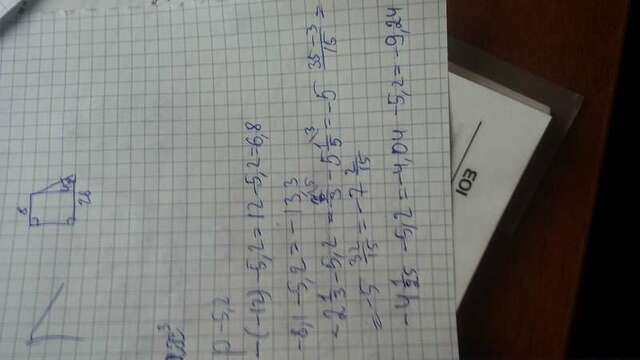 8
28
p-5,2
-(-12)-5,2=12-5,2=6,8
-8,1-5,2=-13,3
-2 1/3-5,2=-3-5 1/5=-5 35-3/15=
=-5 32/15=-7 2/15
-4 1/25-5,2=-4,04-5,2=-9,24
103